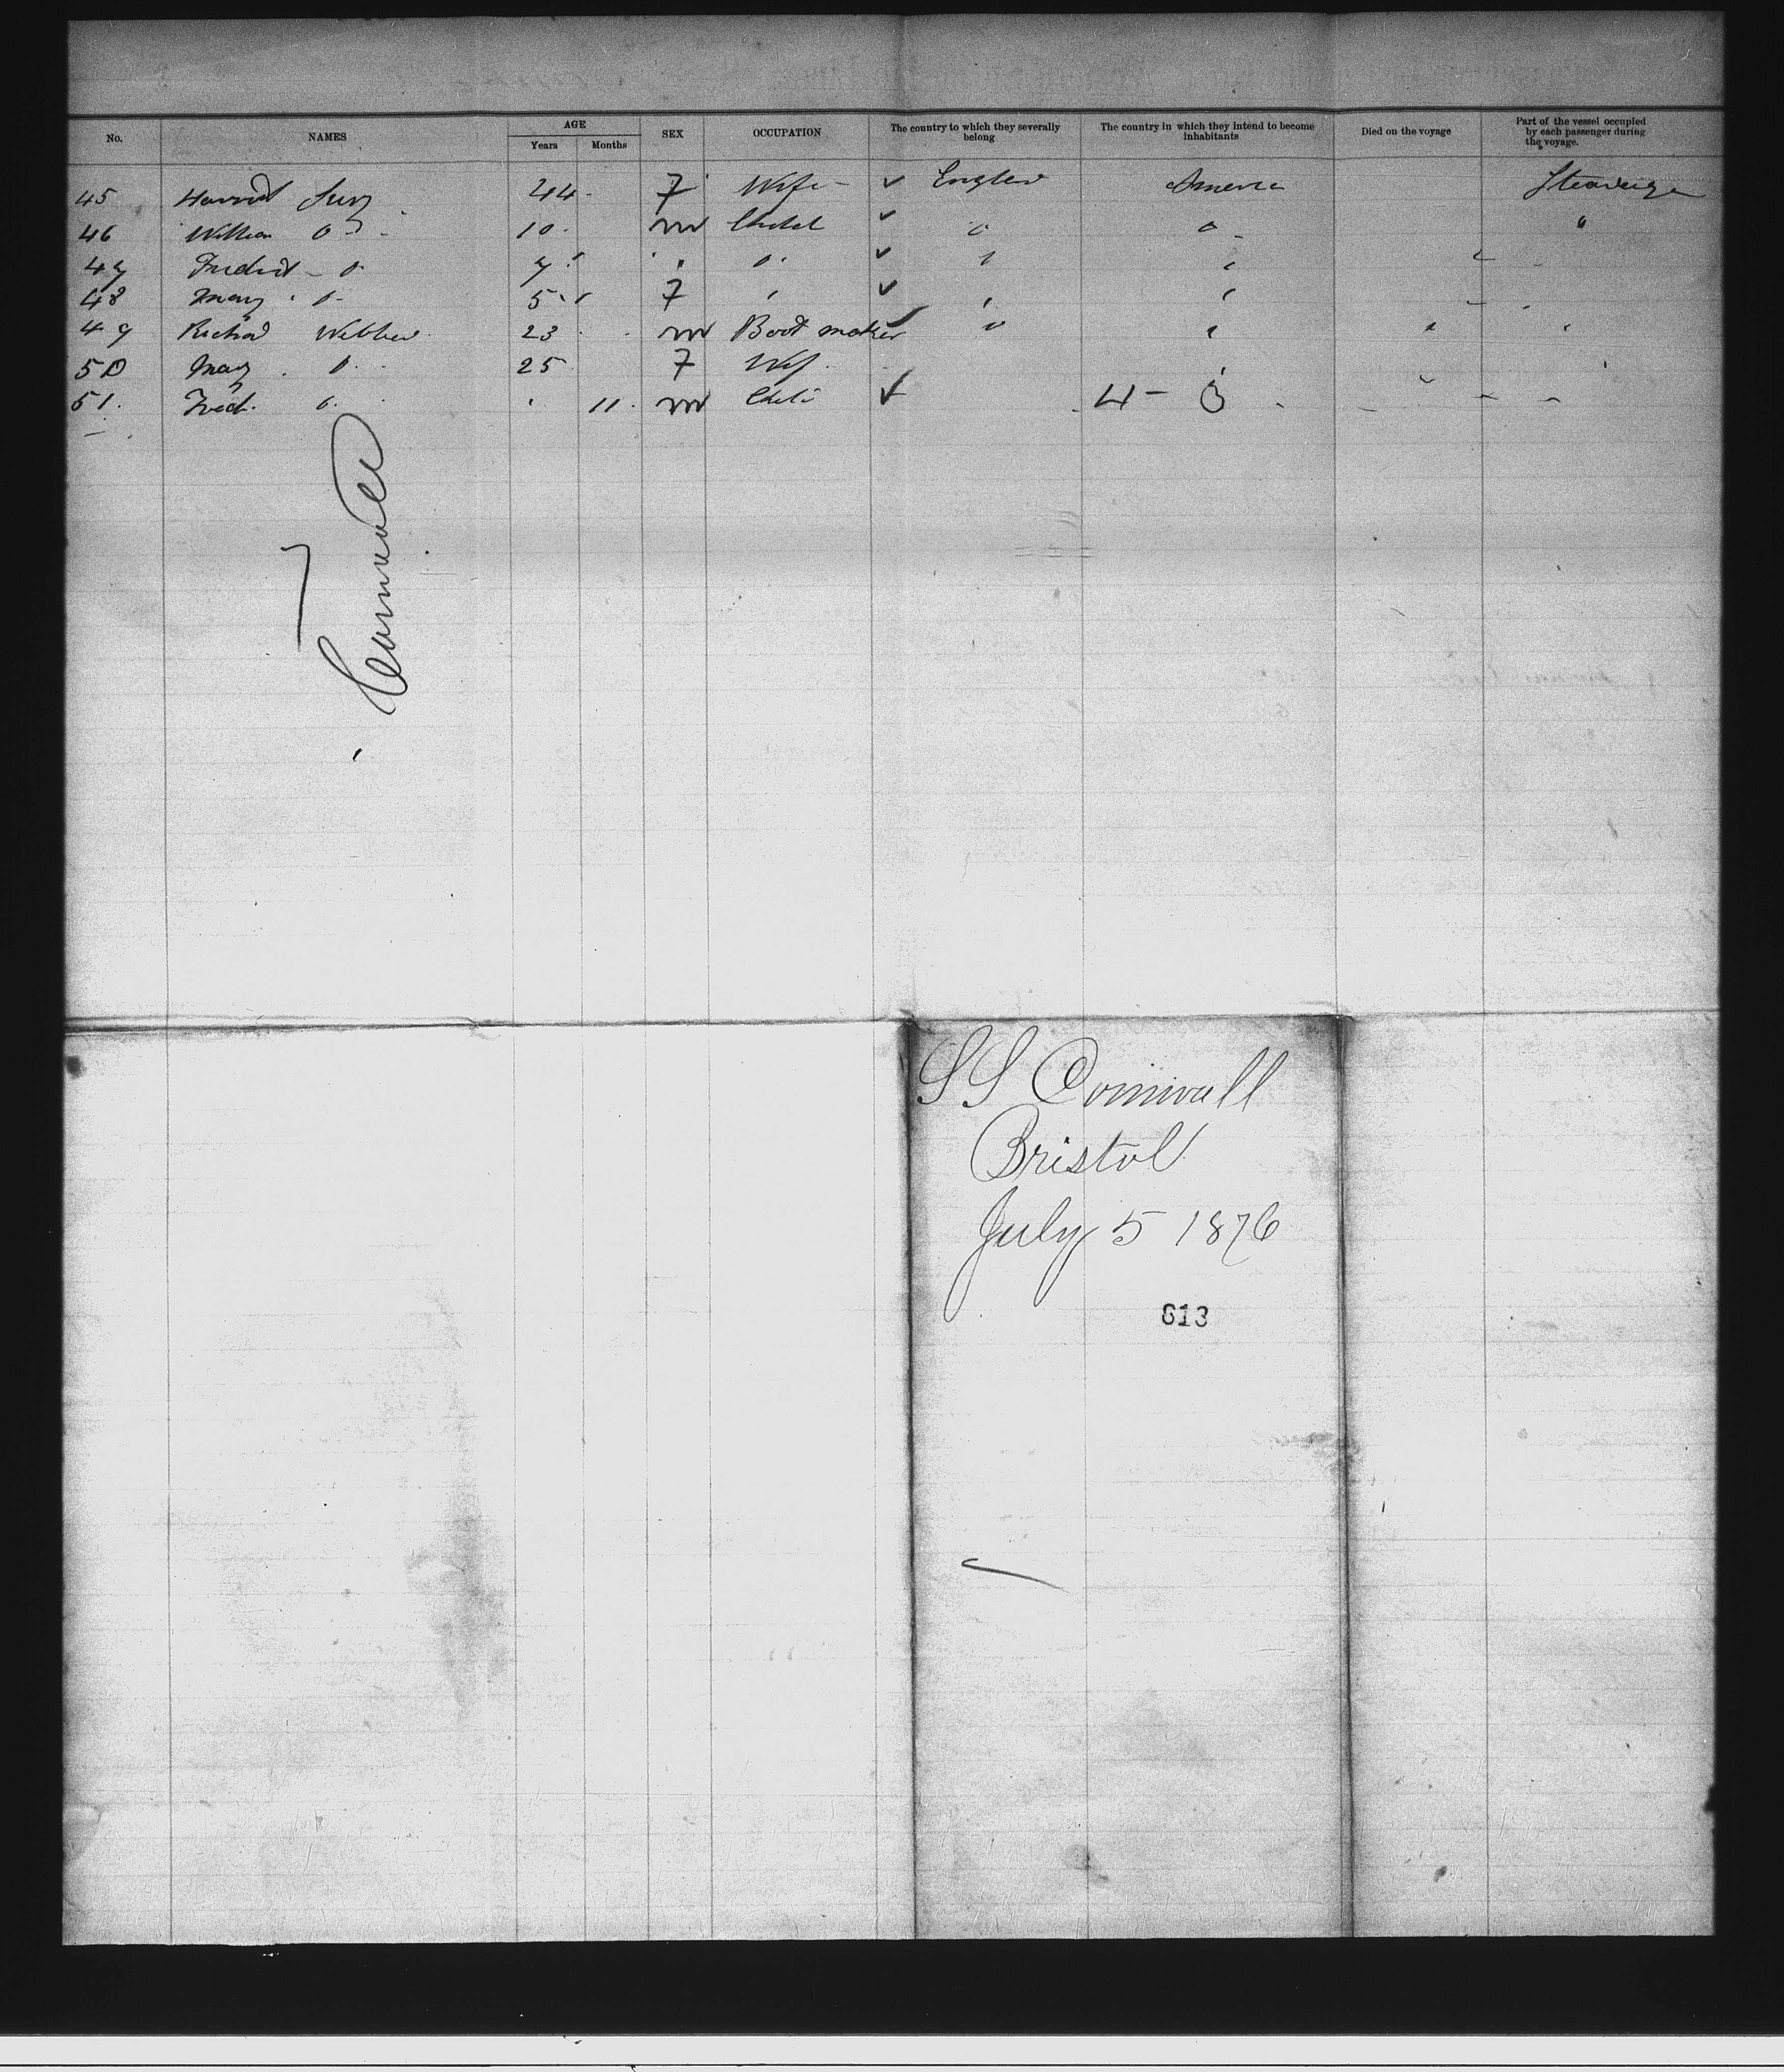 No. NAMES AGE Years Months SEX OCCUPATION The country to which they severally belong The country in which they intend to become inhabitants Died on the voyage Part of the vessel occupied by each passenger during the voyage.
45 Harriet 44 - F Wife - ✓ England America Steerage
46 William " 10 m Child ✓ " " "
47 " 7 " " ✓ " "
48 Mary " 5 F " ✓ " "
49 Richard Webber 23 m Boot maker " " "
50 Mary " 25 F Wif
51. Fred. " 11 m ✓ 4 -
Cornwall
SS Cornwall
Bristol
July 5 1876
613